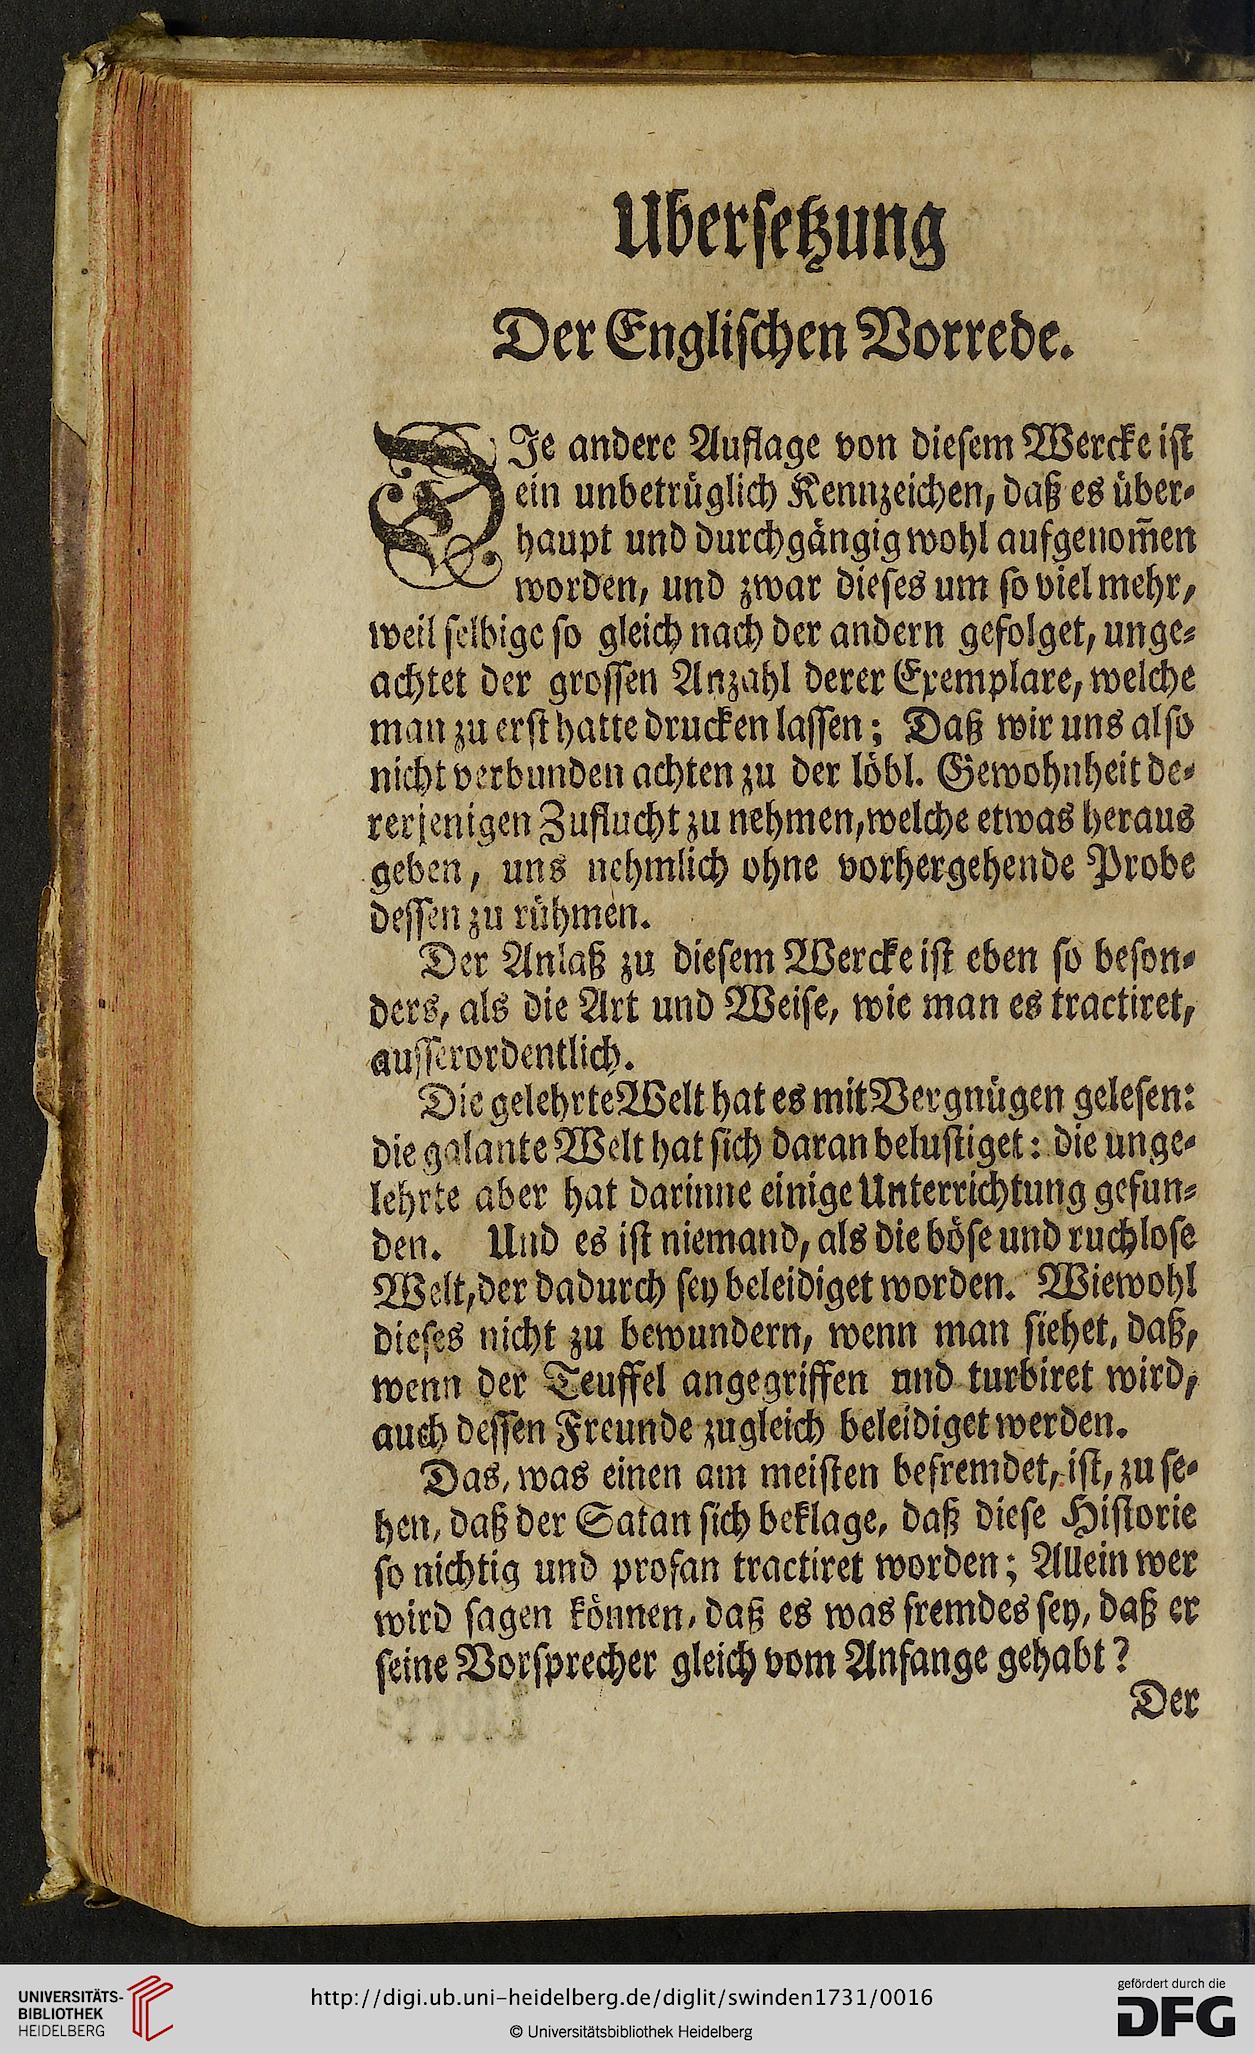 Ubersetzung
Der Englischen Vorrede.
DIe andere Auflage von diesem Wercke ist
ein unbetrüglich Kennzeichen, daß es über-
haupt und durchgängig wohl aufgenom̃en
worden, und zwar dieses um so viel mehr,
weil selbige so gleich nach der andern gefolget, unge-
achtet der grossen Anzahl derer Exemplare, welche
man zu erst hatte drucken lassen; Daß wir uns also
nicht verbunden achten zu der löbl. Gewohnheit de-
rerjenigen Zuflucht zu nehmen, welche etwas heraus
geben, uns nehmlich ohne vorhergehende Probe
dessen zu rühmen.
Der Anlaß zu diesem Wercke ist eben so beson-
ders, als die Art und Weise, wie man es tractiret,
ausserordentlich.
Die gelehrte Welt hat es mit Vergnügen gelesen:
die galante Welt hat sich daran belustiget: die unge-
lehrte aber hat darinne einige Unterrichtung gefun-
den. Und es ist niemand, als die böse und ruchlose
Welt, der dadurch sey beleidiget worden. Wiewohl
dieses nicht zu bewundern, wenn man siehet, daß,
wenn der Teuffel angegriffen und turbiret wird,
auch dessen Freunde zugleich beleidiget werden.
Das, was einen am meisten befremdet, ist, zu se-
hen, daß der Satan sich beklage, daß diese Historie
so nichtig und profan tractiret worden; Allein wer
wird sagen können, daß es was fremdes sey, daß er
seine Vorsprecher gleich vom Anfange gehabt?
Der
UNIVERSITÄTS-
BIBLIOTHEK
HEIDELBERG
http://digi.ub.uni-heidelberg.de/diglit/swinden1731/0016
© Universitätsbibliothek Heidelberg
gefördert durch die
DFG